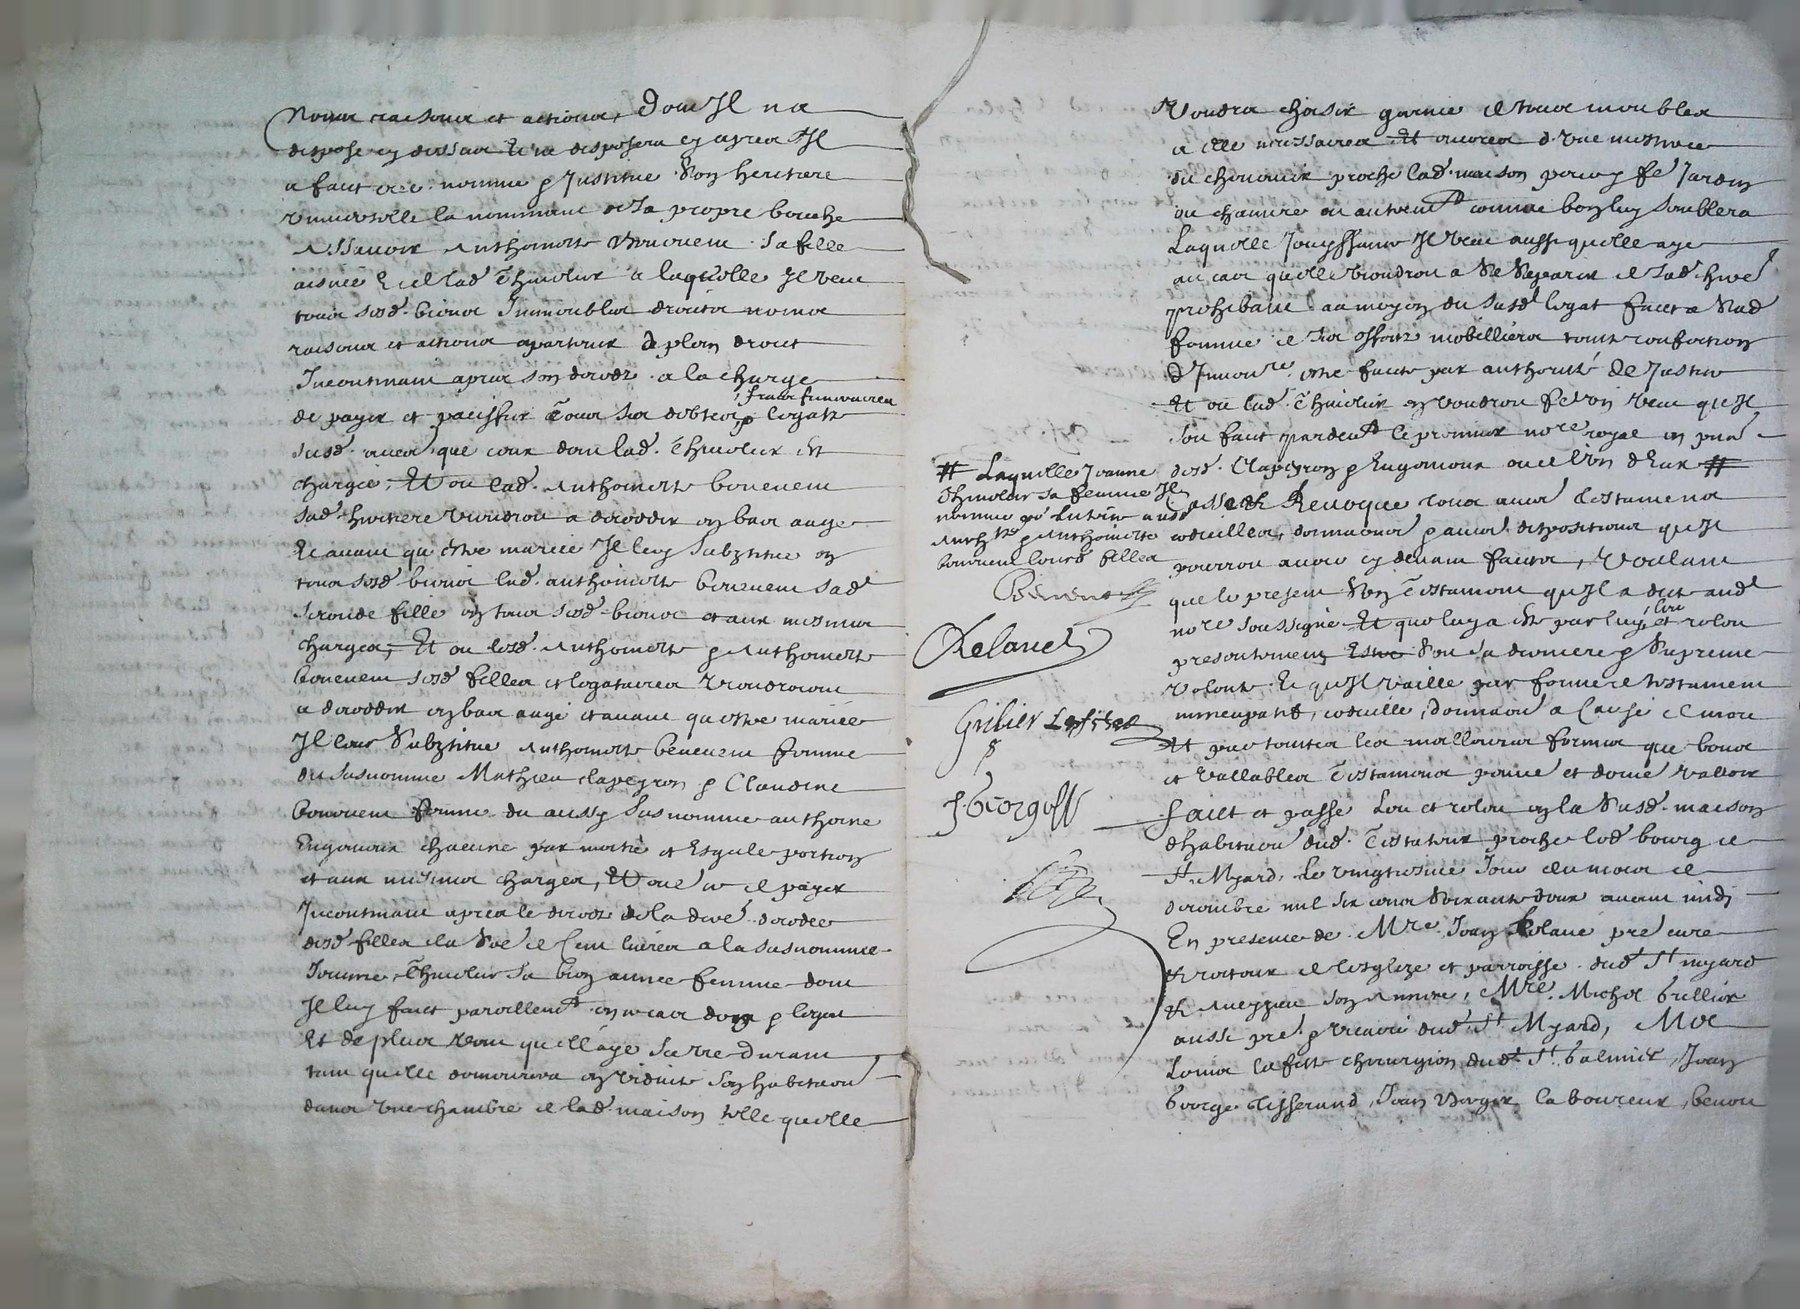 Noms raisons et actions, dont Il na
dispose cy dessus Et ne disposera cy apres Il
a faict cree nomme & Institue Son heritiere
universelle la nommant de sa propre bouche
Assavoir Anthoinette Benevent sa fille
aisnée de lad. Thivolier a laquelle Il veut
tous sesd. biens Immeubles droits noms
raisons et actions apartenir de plein droict
Incontinant apres son deceds a la charge
de payer et paciffier tous ses debtes, frais funeraires & legats
susd. avec ceux dont lad. Thivolier est
chargée, Et ou lad. Anthoinette benevent
sad. heritiere viendroit a decedder en bas aage
Et avant qu'estre mariée Il luy Substitue en
tous sesd. biens lad. anthoinette benevent sad.
seconde fille en tous sesd. biens et aux mesmes
charges, Et ou lesd. Anthoinette & Anthoinette
benevent sesd. filles et legataires viendroient
a decedder en bas aage et avant qu'estre mariées
Il leur Substitue Anthoinette benevent femme
du susnomme Mathieu clapeyron & Claudine
benevent femme du aussy susnomme anthoine
Engonoux chacune par moitié et Esgale portion
et aux mesmes charges, Et outre ce de payer
Incontinant apres le deceds de la
desd. filles la livres a la susnommée
Jeanne Thivolier sa bien aimee femme dont
Il luy faict pareillemt en ce cas don & legat
Et de plus veut qu'ell'aye sa vie durant
tant quelle demeurera en viduité son habitaon
dans une chambre de lad. maison telle quelle
Voudra choisir garnie de tous meubles
a elle necessaires Et encores d'une mestree
du chenevier proche lad. maison pour y fe Jardin
ou chanvre ou autremt comme bon luy semblera
Laquelle Jouyssance Il veut aussi quelle aye
au cas quelle viendroit a se separer de sad. here
prohibant au moyen du susd. legat faict a sad.
femme de ses effaits mobilliers toute confection
d'Invenre estre faicte par authorité de Justice
Et ou lad. Thivolier en voudroit fe un veut qu'Il
soit faict pardevt le premier nore royal en pnce
desd. Clapeyron & Engonoux ou de l'un d'Eux #
Casse et Revoque tous autres testaments
codicilles, donnaons & autres dispositions qu'Il
pourroit avoir cy devant faictes, Voulant
que le present Son Testament qu'Il a dict aud.
nore soussigné Et que luy a este par luy leu et releu
presentement Estre Son sa derniere & Supreme
Volonté Et qu'Il vaille par forme de testament
nuncupatif, codicille, donnaon a cause de mort
Et par toutes les meilleures formes que bons
et vallables Testaments peuvent et doivent valloir
Faict et passe leu et releu en la susd. maison
d'habitaon dud. Testateur proche led. bourg de
St. Myard, Le vingtiesme Jour du mois de
decembre mil six cens soixante deux avant midi
En presence de Mre Jean Relave pre cure
Et recteur de l'esglize et parroisse dud. St myard
et Aveyzieu son Annexe, Mre. Michel Grillier
aussi pre & viccaire dud. St Myard, Me
Louis lafitte chirurgien dud. St. Galmier, Jean
George tisserand, Jean Verger laboureur, benoit
# Laquelle Jeanne
Thivolier sa femme Il
nomme po tutrice ausd.
Anthte & Anthoinette
benevent leursd. filles
Benevent
Relave
Grilier Lafitte
J. George